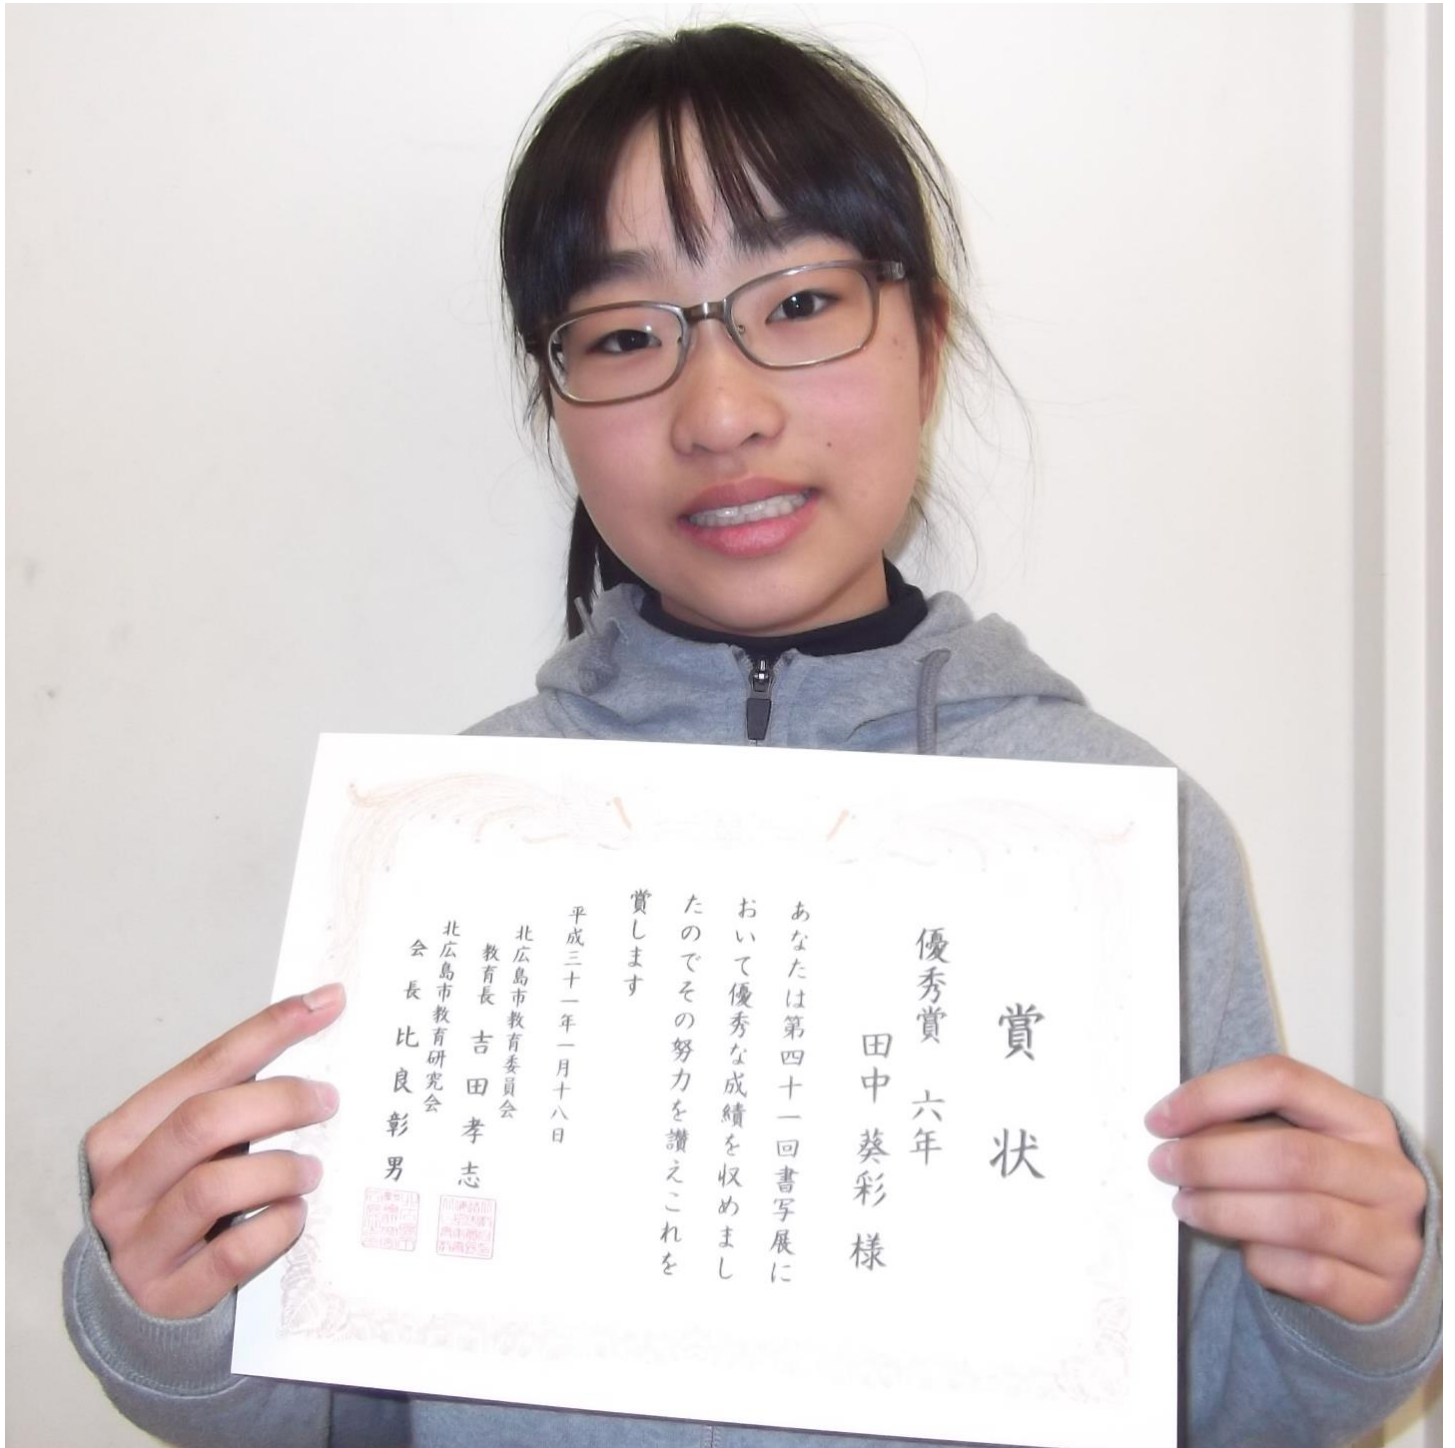 賞状
優秀賞 六年
田中 葵彩 様
あなたは第四十一回書写展に
おいて優秀な成績を収めまし
たのでその努力を讃えこれを
賞します
平成三十一年一月十八日
北広島市教育委員会
教育長 吉田孝志
北広島市教育研究会
会長 比良彰男